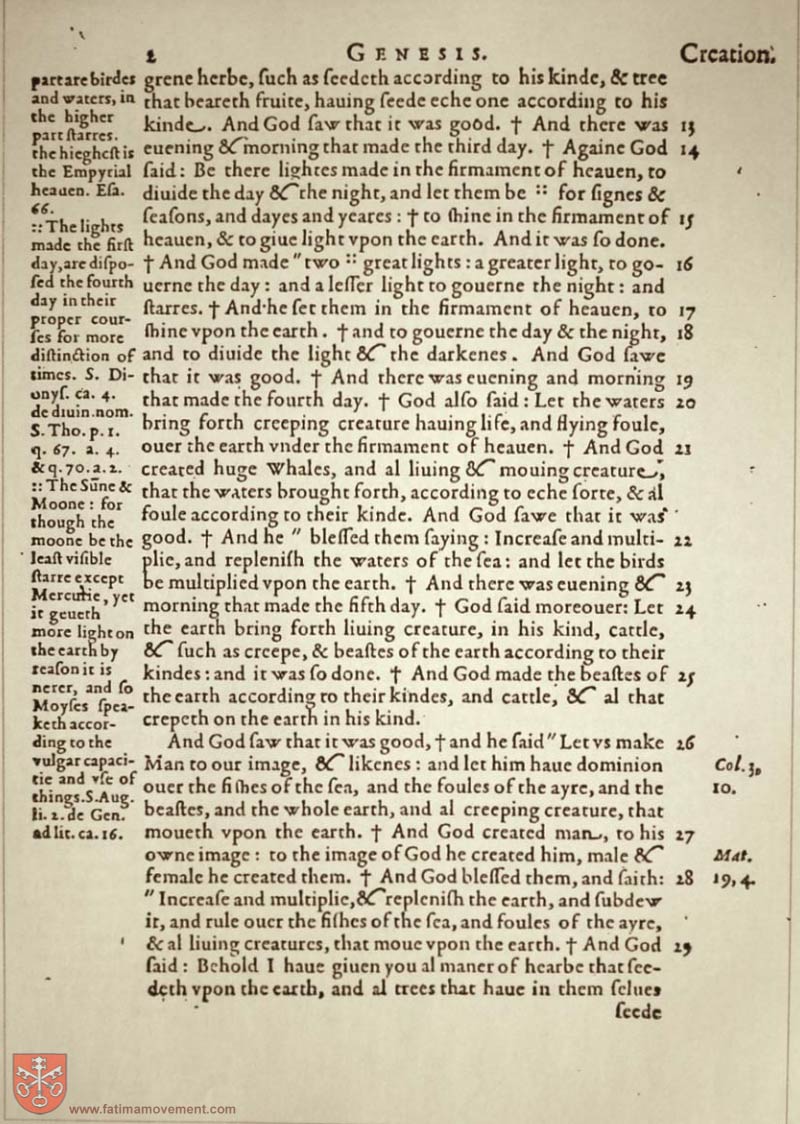 2
GENESIS.
Creation.
part are birdes
and waters, in
the higher
part ſtarres.
the hiegheſt is
the Empyrial
heauen. Eſa.
66.
:: The lights
made the firſt
day, are diſpo-
ſed the fourth
day in their
proper cour-
ſes for more
diſtinction of
times. S. Di-
onyſ. ca. 4.
de diuin. nom.
S. Tho. p. 1.
q. 67. a. 4.
& q. 70. a. 2.
:: The Sūne &
Moone : for
though the
moone be the
leaſt viſible
ſtarre except
Mercurie, yet
it geueth
more light on
the earth by
reaſon it is
nerer, and ſo
Moyſes ſpea-
keth accor-
ding to the
vulgar capaci-
tie and vſe of
things. S. Aug.
li. 2. de Gen.
ad lit. ca. 16.
grene herbe, ſuch as ſeedeth according to his kinde, & tree
that beareth fruite, hauing ſeede eche one according to his
kinde. And God ſaw that it was good. † And there was 13
euening & morning that made the third day. † Againe God 14
ſaid : Be there lightes made in the firmament of heauen, to
diuide the day & the night, and let them be :: for ſignes &
ſeaſons, and dayes and yeares : † to ſhine in the firmament of 15
heauen, & to giue light vpon the earth. And it was ſo done.
† And God made " two :: great lights : a greater light, to go- 16
uerne the day : and a leſſer light to gouerne the night : and
ſtarres. † And he ſet them in the firmament of heauen, to 17
ſhine vpon the earth . † and to gouerne the day & the night, 18
and to diuide the light & the darkenes . And God ſawe
that it was good. † And there was euening and morning 19
that made the fourth day. † God alſo ſaid : Let the waters 20
bring forth creeping creature hauing life, and flying foule,
ouer the earth vnder the firmament of heauen. † And God 21
created huge Whales, and al liuing & mouing creature,
that the waters brought forth, according to eche ſorte, & al
foule according to their kinde. And God ſawe that it was
good. † And he " bleſſed them ſaying : Increaſe and multi- 22
plie, and repleniſh the waters of the ſea : and let the birds
be multiplied vpon the earth. † And there was euening & 23
morning that made the fifth day. † God ſaid moreouer: Let 24
the earth bring forth liuing creature, in his kind, cattle,
& ſuch as creepe, & beaſtes of the earth according to their
kindes : and it was ſo done. † And God made the beaſtes of 25
the earth according to their kindes, and cattle, & al that
crepeth on the earth in his kind.
And God ſaw that it was good, † and he ſaid " Let vs make 26
Man to our image, & likenes : and let him haue dominion
ouer the fiſhes of the ſea, and the foules of the ayre, and the
beaſtes, and the whole earth, and al creeping creature, that
moueth vpon the earth. † And God created man, to his 27
owne image : to the image of God he created him, male &
female he created them. † And God bleſſed them, and ſaith: 28
" Increaſe and multiplie, & repleniſh the earth, and ſubdew
it, and rule ouer the fiſhes of the ſea, and foules of the ayre,
& al liuing creatures, that moue vpon the earth. † And God 29
ſaid : Behold I haue giuen you al maner of hearbe that ſee-
deth vpon the earth, and al trees that haue in them ſelues
ſeede
Col. 3,
10.
Mat.
19, 4.
www.fatimamovement.com